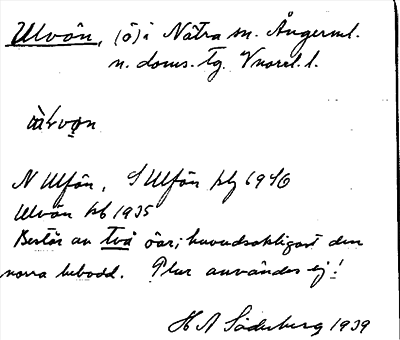 Ulvön, (ö) i Nätra sn. Ångerml.
n. doms. tg. Vnorrl. l.
N Ulfön, S Ulfön
Ulvön 1935
Består av två öar; huvudsakligast den
norra bebodd. Plur användes ej!
H A Söderberg 1939